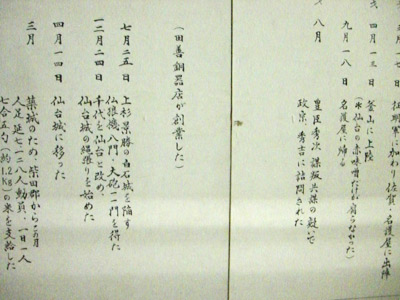 征明軍に加わり佐賀・名護屋に出陣
四月一三日 釜山に上陸
(※仙台の赤味噌だけが腐らなかった)
九月一八日 名護屋に帰る
八月 豊臣秀次 謀叛共謀の疑いで
政宗、秀吉に詰問された
(田善銅器店が創業した)
七月二五日 上杉景勝の白石城を陥す
仏狼機八門・大砲一門を得た
十二月二四日 千代を仙台と改め、
仙台城の縄張りを始めた
四月一四日 仙台城に移った
三月 築城のため、柴田郡から
人足延七一二八人動員、一日一人
七合五勺(約1.2kg)の米を支給した